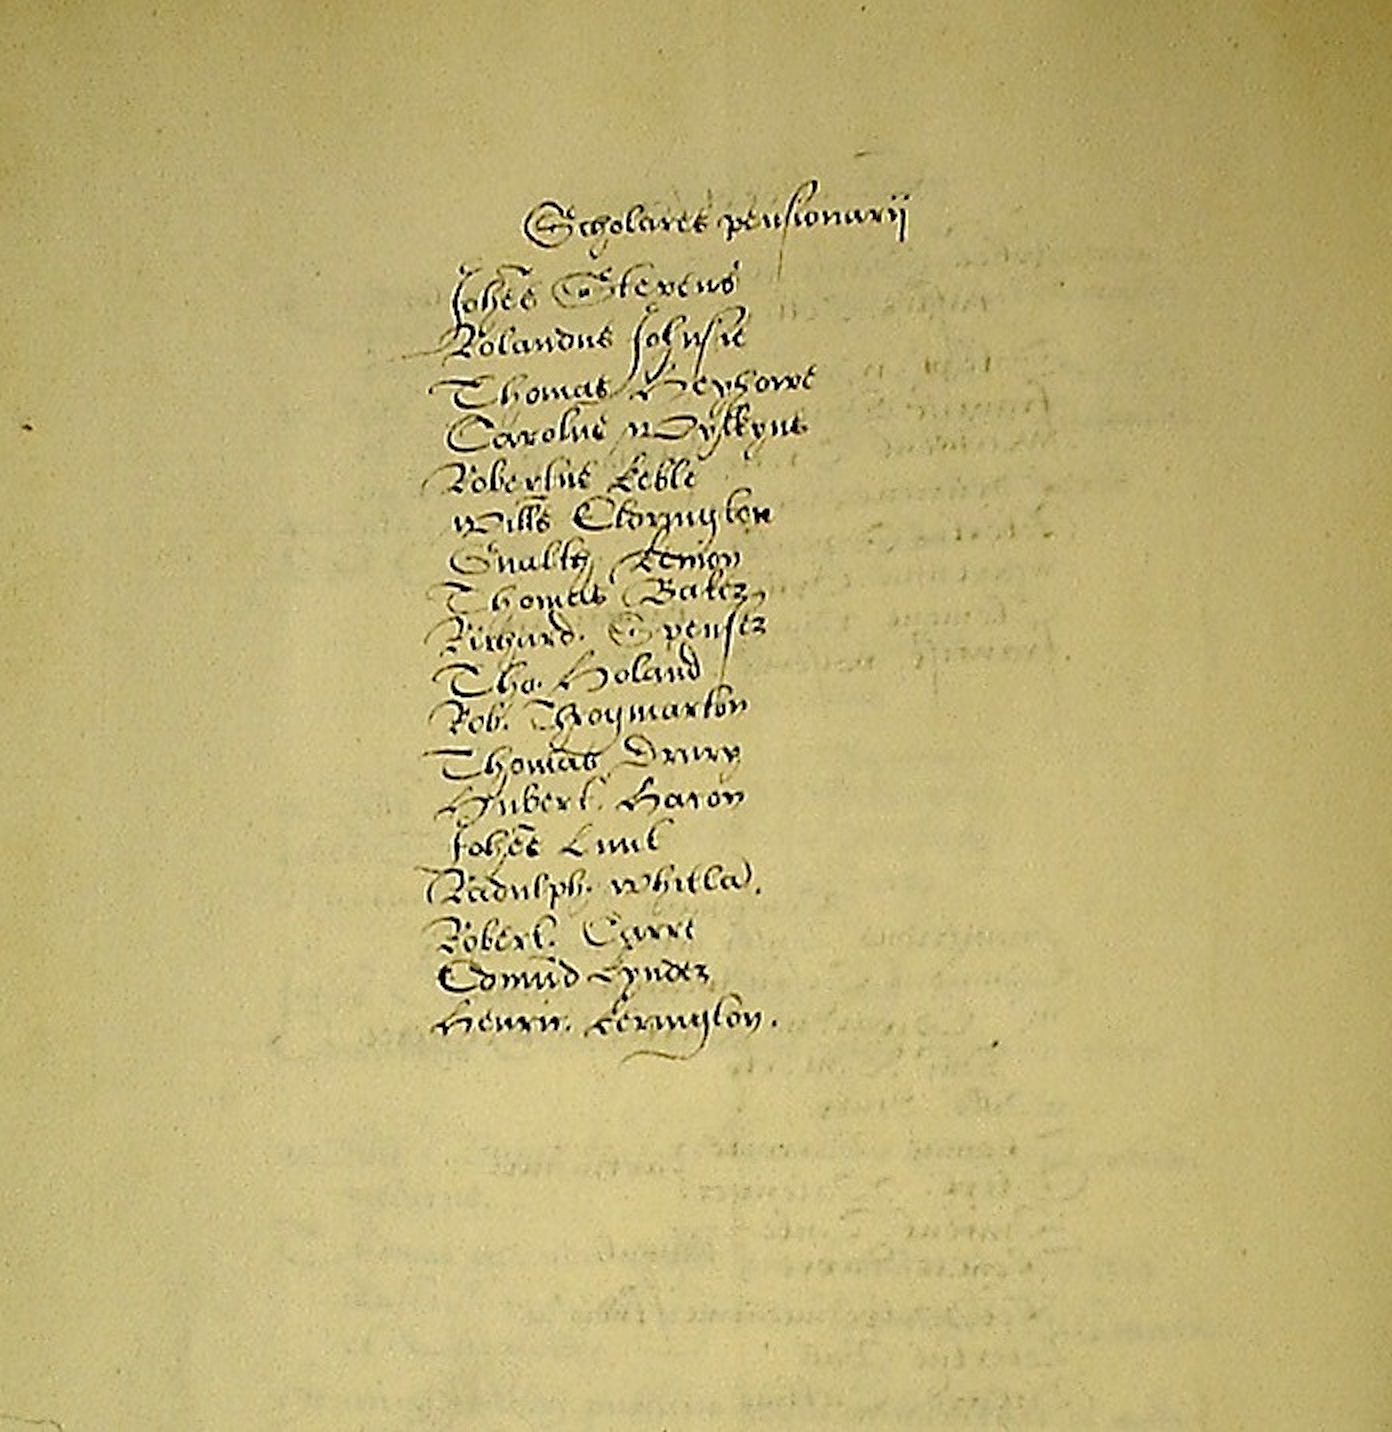 Scholares pensionarij
Johēs Stevens
Rolandus Johnsō
Thomas Heyhowe
Carolus Wylkyns
Robertus Keble
Willm̄s Edrington
Gualt. Kemp
Thomas Baker
Richard. Spenser
Tho. Holand
Rob. Throgmarton
Thomas Drury
Hubert. Hacon
Johēs Lunt
Radulph. Whitla.
Robert. Carre
Edmūd Tynder
Henric. Kerington.